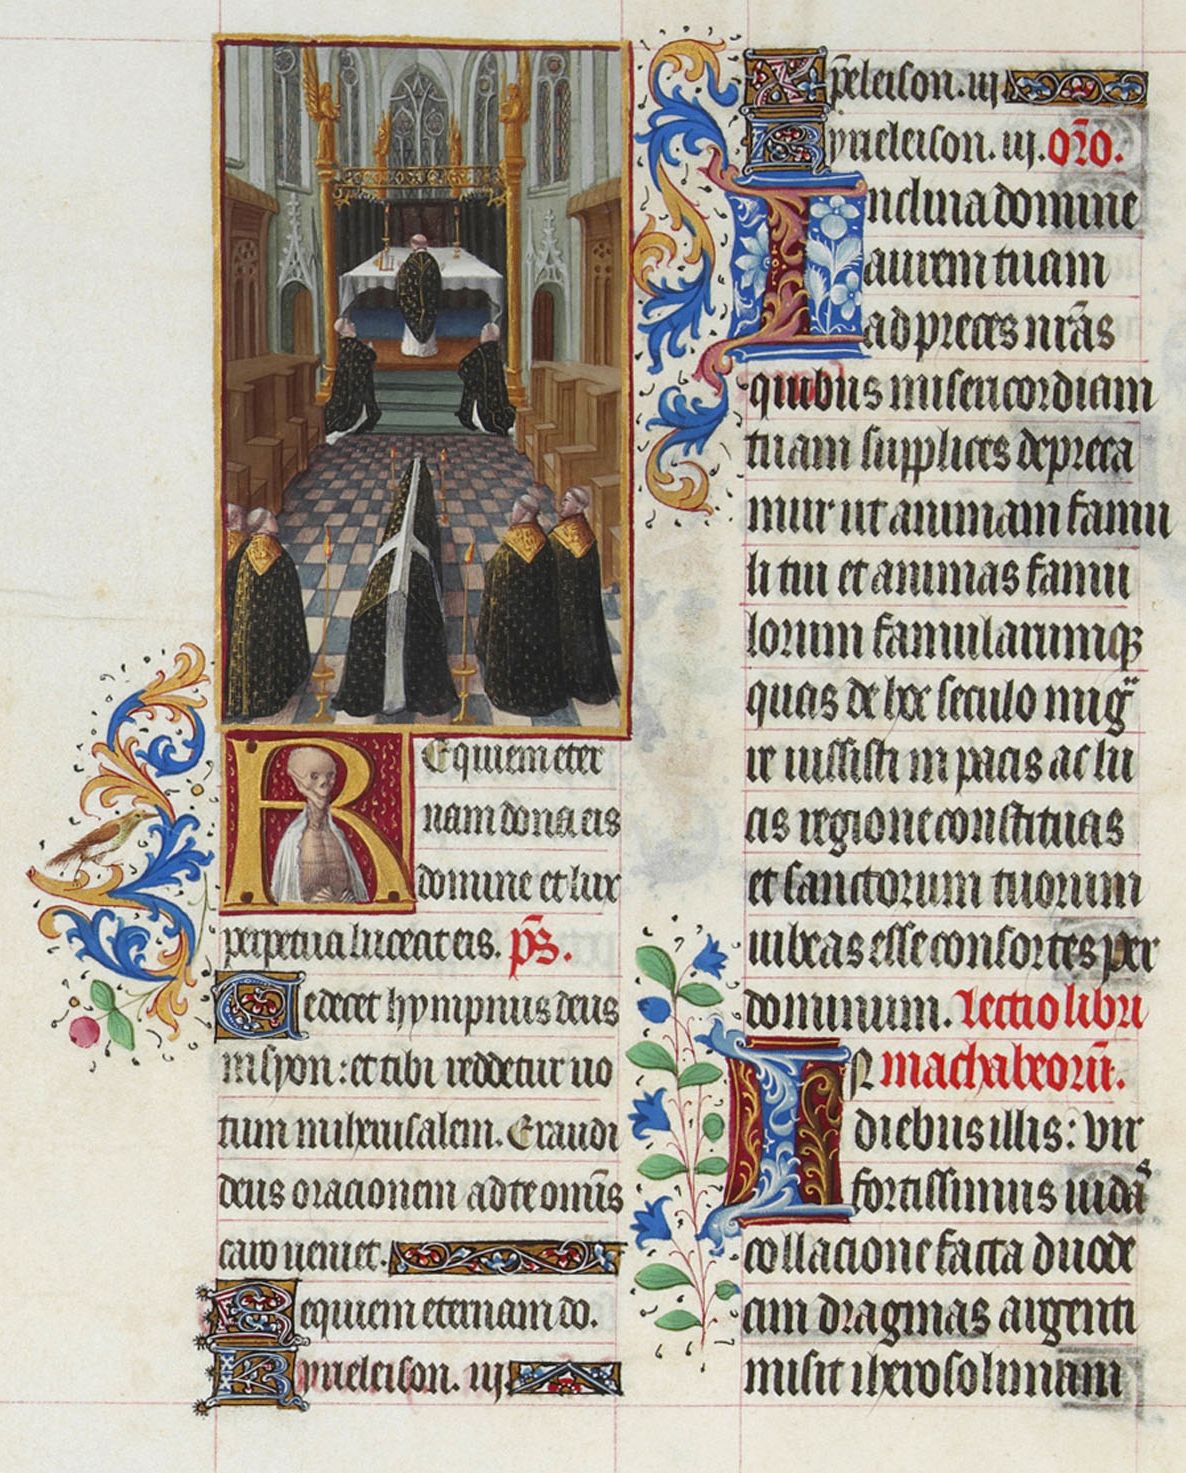 Requiem eter
nam dona eis
domine et lux
perpetua luceat eis. ps̄.
Te decet hympnus deus
in syon: et tibi reddetur uo
tum in iherusalem. Exaudi
deus oracionem ad te omīs
caro ueniet.
Requiem eternam do.
Kyrieleison. iij.
Xp̄eleison. iij
Kyrieleison. iij. oro.
Inclina domine
aurem tuam
ad preces nrās
quibus misericordiam
tuam supplices depreca
mur ut animam famu
li tui et animas famu
lorum famularumqꝫ
quas de hoc seculo migͣ
re iussisti in pacis ac lu
cis regione constituas
et sanctorum tuorum
iubeas esse consortes per
dominum. Lectio libri
IN machabeorū.
diebus illis: vir
fortissimus iudas
collacione facta duode
cim dragmas argenti
misit iherosolimam